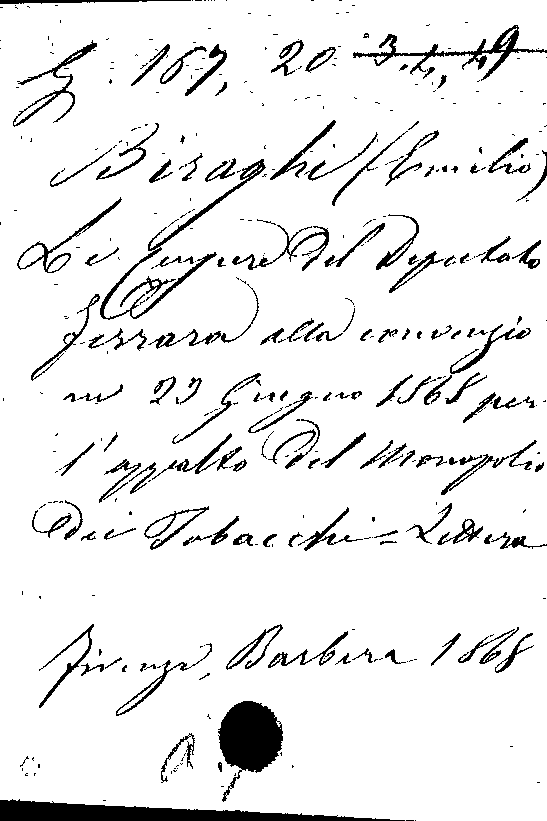 G. 167, 20 3.4,49
Biraghi (Emilio)
Le Censure del Deputato
Ferrara alla convenzio
ne 23 Giugno 1868 per
l'appalto del Monopolio
dei Tabacchi = Lettera
Firenze, Barbera 1868